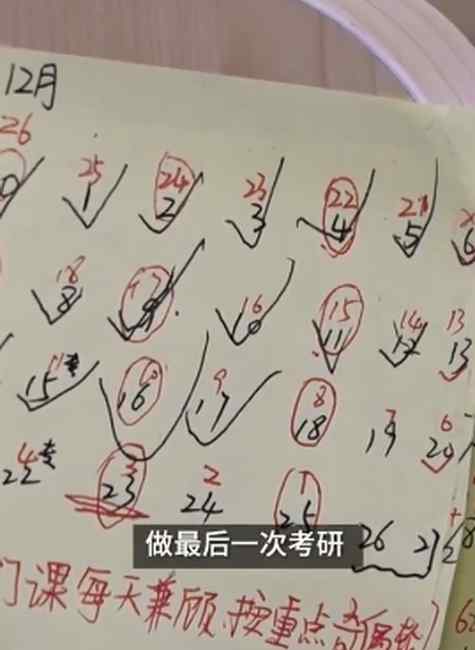 12月
26 25 24 23 22 21
0 1 2 3 4 5 6
18 17 16 15 14 13
8 9 10 11 12 13
11 10 9 8 7 6
15 16 17 18 19 20
4 3 2 1
22 23 24 25
26 27
做最后一次考研
门课每天兼顾,按重点